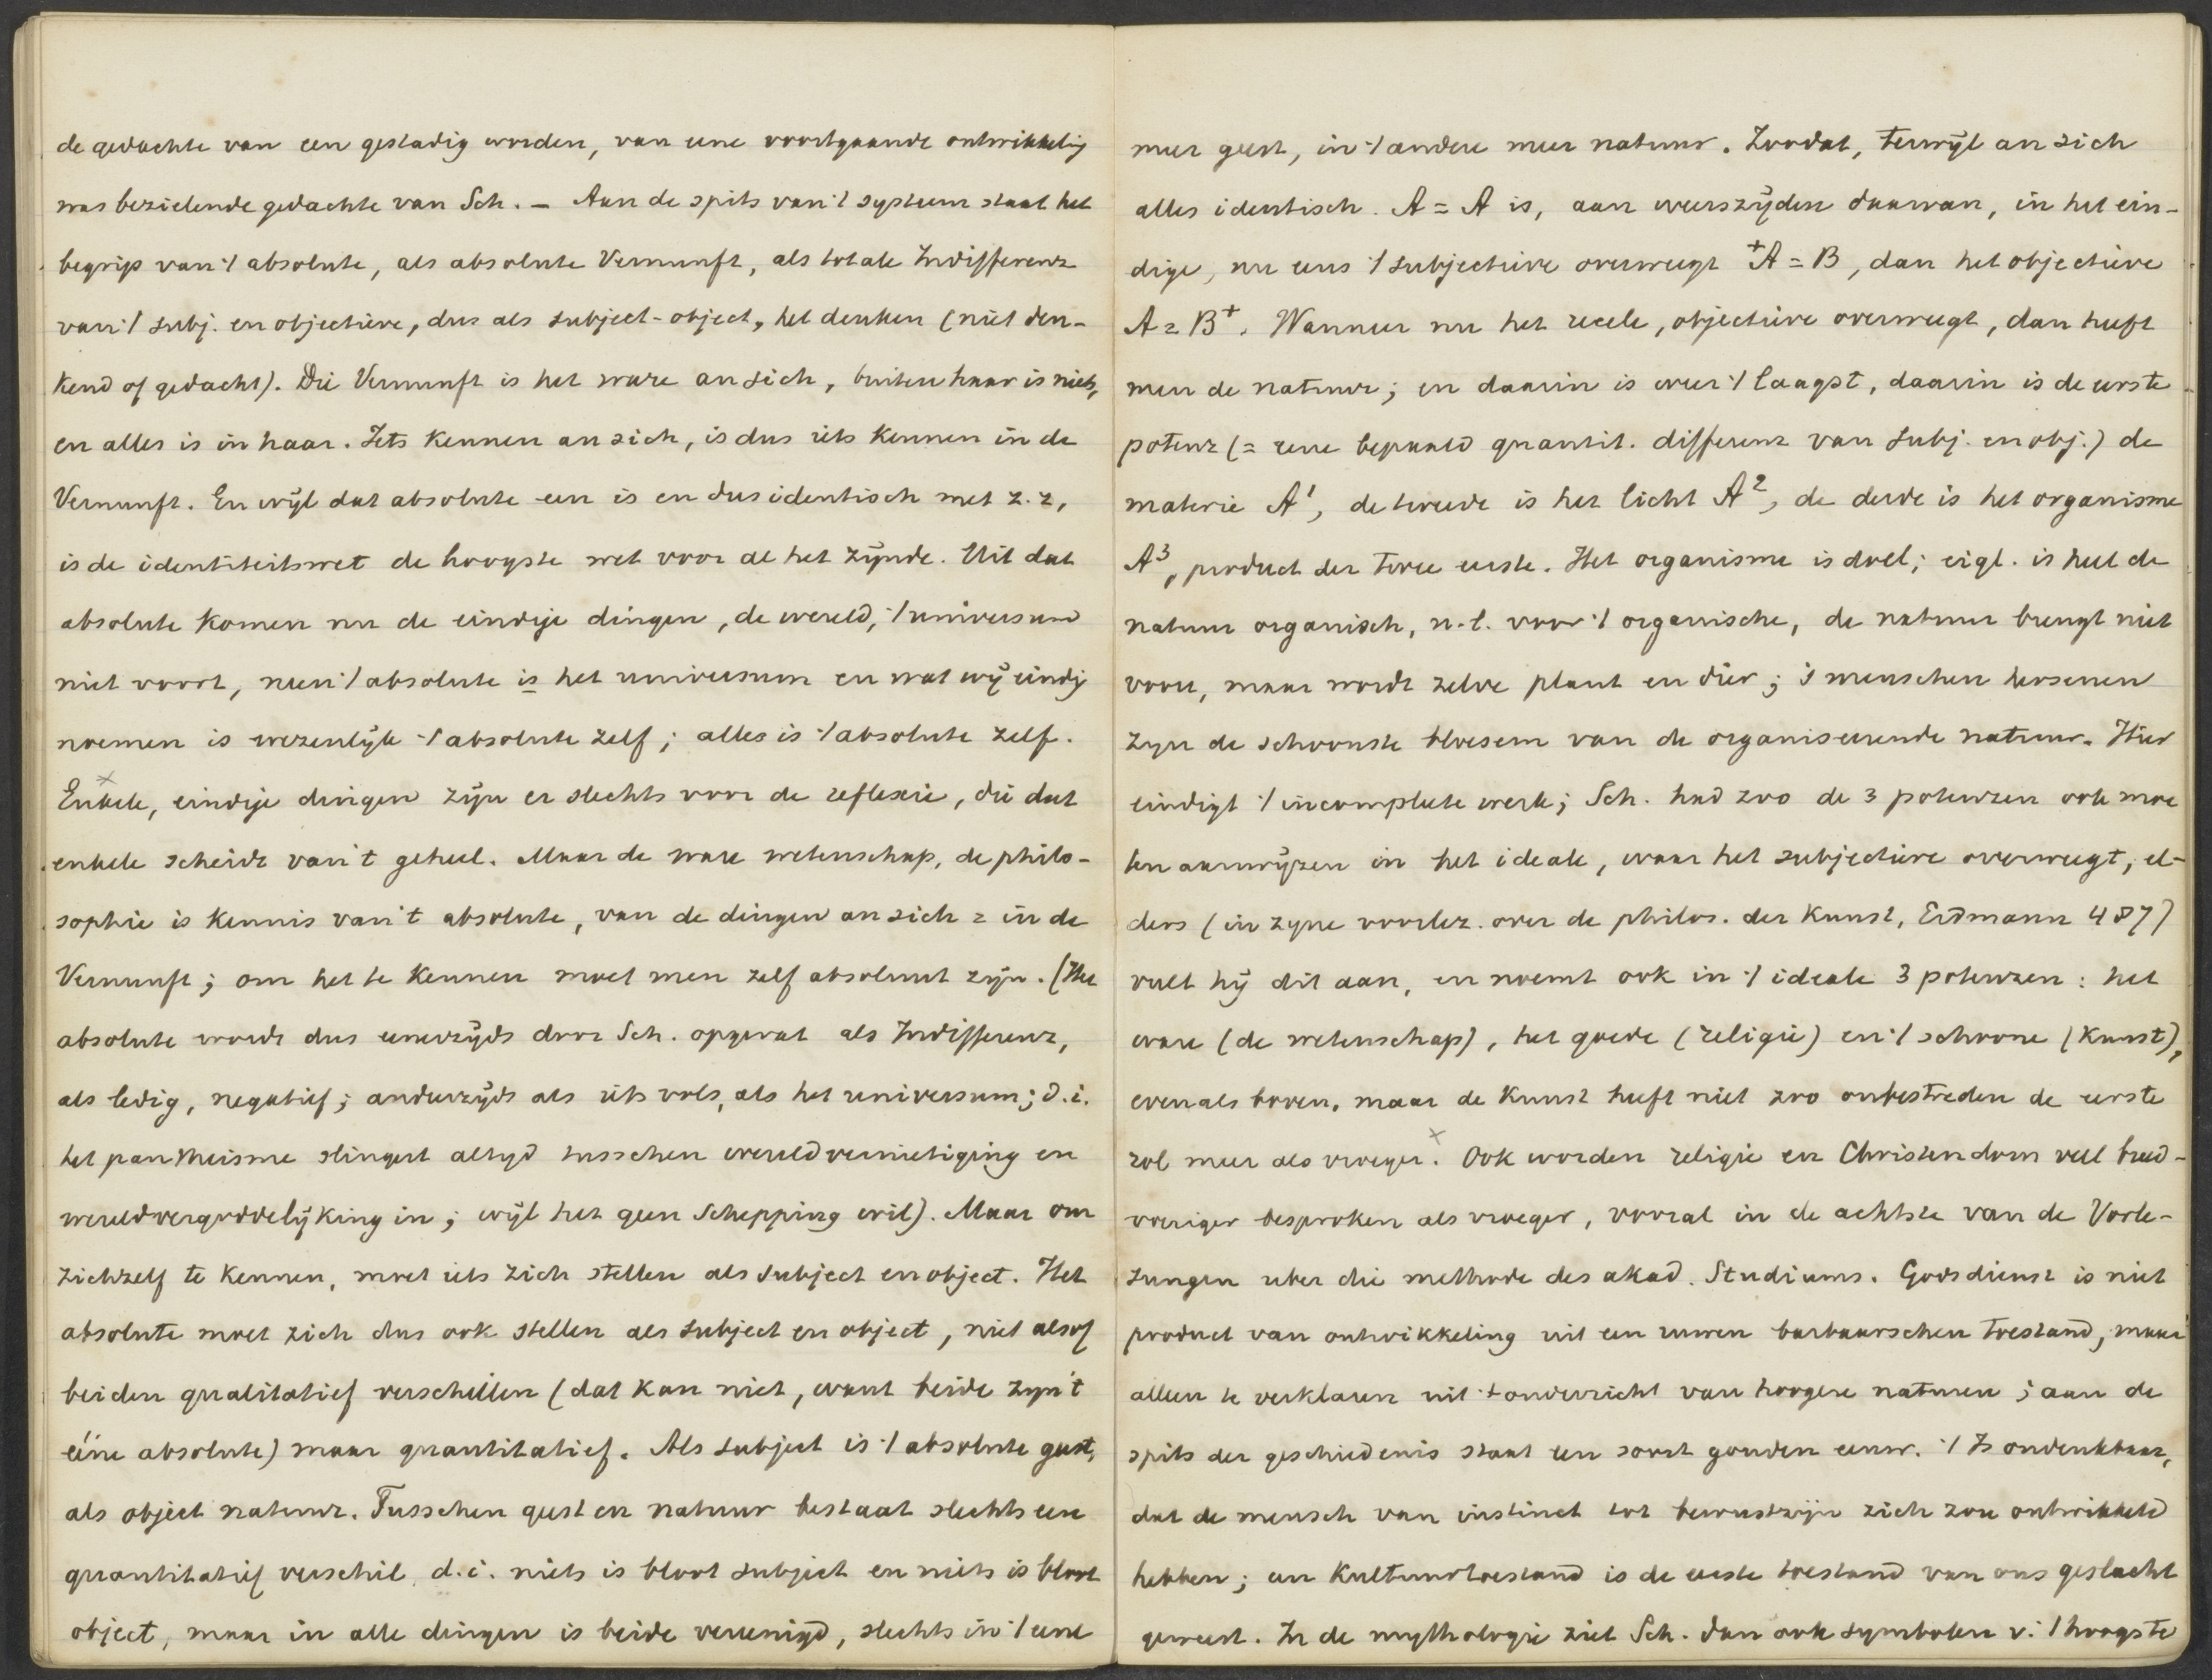 de gedachte van een gestadig worden, van eene voortgaande ontwikkelig
was bezielende gedachte van Sch. – Aan de spits van 't systeem staat het
begrip van 't absolute, als absolute Vernunft, als totale Indifferenz
van 't subj. en objectieve, dus als subject-object, het denken (niet den-
kend of gedacht). Die Vernunft is het ware an sich, buiten haar is niets,
en alles is in haar. Iets kennen an sich, is dus iets kennen in de
Vernunft. En wijl dat absolute een is en dus identisch met z.z,
is de identiteitswet de hoogste wet voor al het zijnde. Uit dat
absolute komen nu de eindige dingen, de wereld, 't universum
niet voort, neen 't absolute is het universum en wat wij eindig
noemen is wezenlijk 't absolute zelf; alles is 't absolute zelf.
Enkele, eindige dingen zijn er slechts voor de reflexie, die dat
enkele scheidt van 't geheel. Maar de ware wetenschap, de philo-
sophie is kennis van 't absolute, van de dingen an sich = in de
Vernunft; om het te kennen moet men zelf absoluut zijn. (Het
absolute wordt dus eenerzijds door Sch. opgevat als Indifferenz,
als ledig, negatief; anderzijds als iets vols, als het universum; d.i.
het pantheisme slingert altijd tusschen wereldvernietiging en
wereldvergoddelijking in; wijl het geen Schepping wil). Maar om
zichzelf te kennen, moet iets zich stellen als subject en object. Het
absolute moet zich dus ook stellen als subject en object, niet alsof
beiden qualitatief verschillen (dat kan niet, want beide zyn 't
ééne absolute) maar quantitatief. Als subject is 't absolute geest,
als object natuur. Tusschen geest en natuur bestaat slechts een
quantitatief verschil, d.i. niets is bloot subject en niets is bloot
object, maar in alle dingen is beide vereenigd, slechts in 't eene
meer geest, in 't andere meer natuur. Zoodat, terwijl an sich
alles identisch. A = A is, aan weerszijden daarvan, in het ein-
dige, nu eens 't subjectieve overweegt +A = B, dan het objectieve
A = B+. Wanneer nu het reeele, objectieve overweegt, dan heeft
men de natuur; en daarin is weer 't laagst, daarin is de eerste
potenz (= eene bepaald quantit. differenz van subj. en obj.) de
materie A¹, de tweede is het licht A², de derde is het organisme
A³, product der twee eerste. Het organisme is doel; eigl. is heel de
natuur organisch, n.l. voor 't organische, de natuur brengt niet
voort, maar wordt zelve plant en dier; 's menschen hersenen
zyn de schoonste bloesem van de organiseerende natuur. Hier
eindigt 't incomplete werk; Sch. had zoo de 3 potenzen ook moe
ten aanwijzen in het ideale, waar het subjectieve overweegt, el-
ders (in zyne voorlez. over de philos. der Kunst, Erdmann 487)
vult hij dit aan, en noemt ook in 't ideale 3 potenzen: het
ware (de wetenschap), het goede (religie) en 't schoone (Kunst),
evenals boven. maar de Kunst heeft niet zoo onbestreden de eerste
rol meer als vroeger. Ook worden religie en Christendom veel breed-
voeriger besproken als vroeger, vooral in de achtste van de Vorle-
sungen uber die methode des akad. Studiums. Godsdienst is niet
product van ontwikkeling uit een ruwen barbaarschen toestand, maar
alleen te verklaren uit 't onderricht van hoogere naturen; aan de
spits der geschiedenis staat een soort gouden eeuw. 't Is ondenkbaar,
dat de mensch van instinct tot bewustzijn zich zou ontwikkeld
hebben; een Kultuurtoestand is de eerste toestand van ons geslacht
geweest. In de mythologie ziet Sch. dan ook symbolen v. 't hoogste